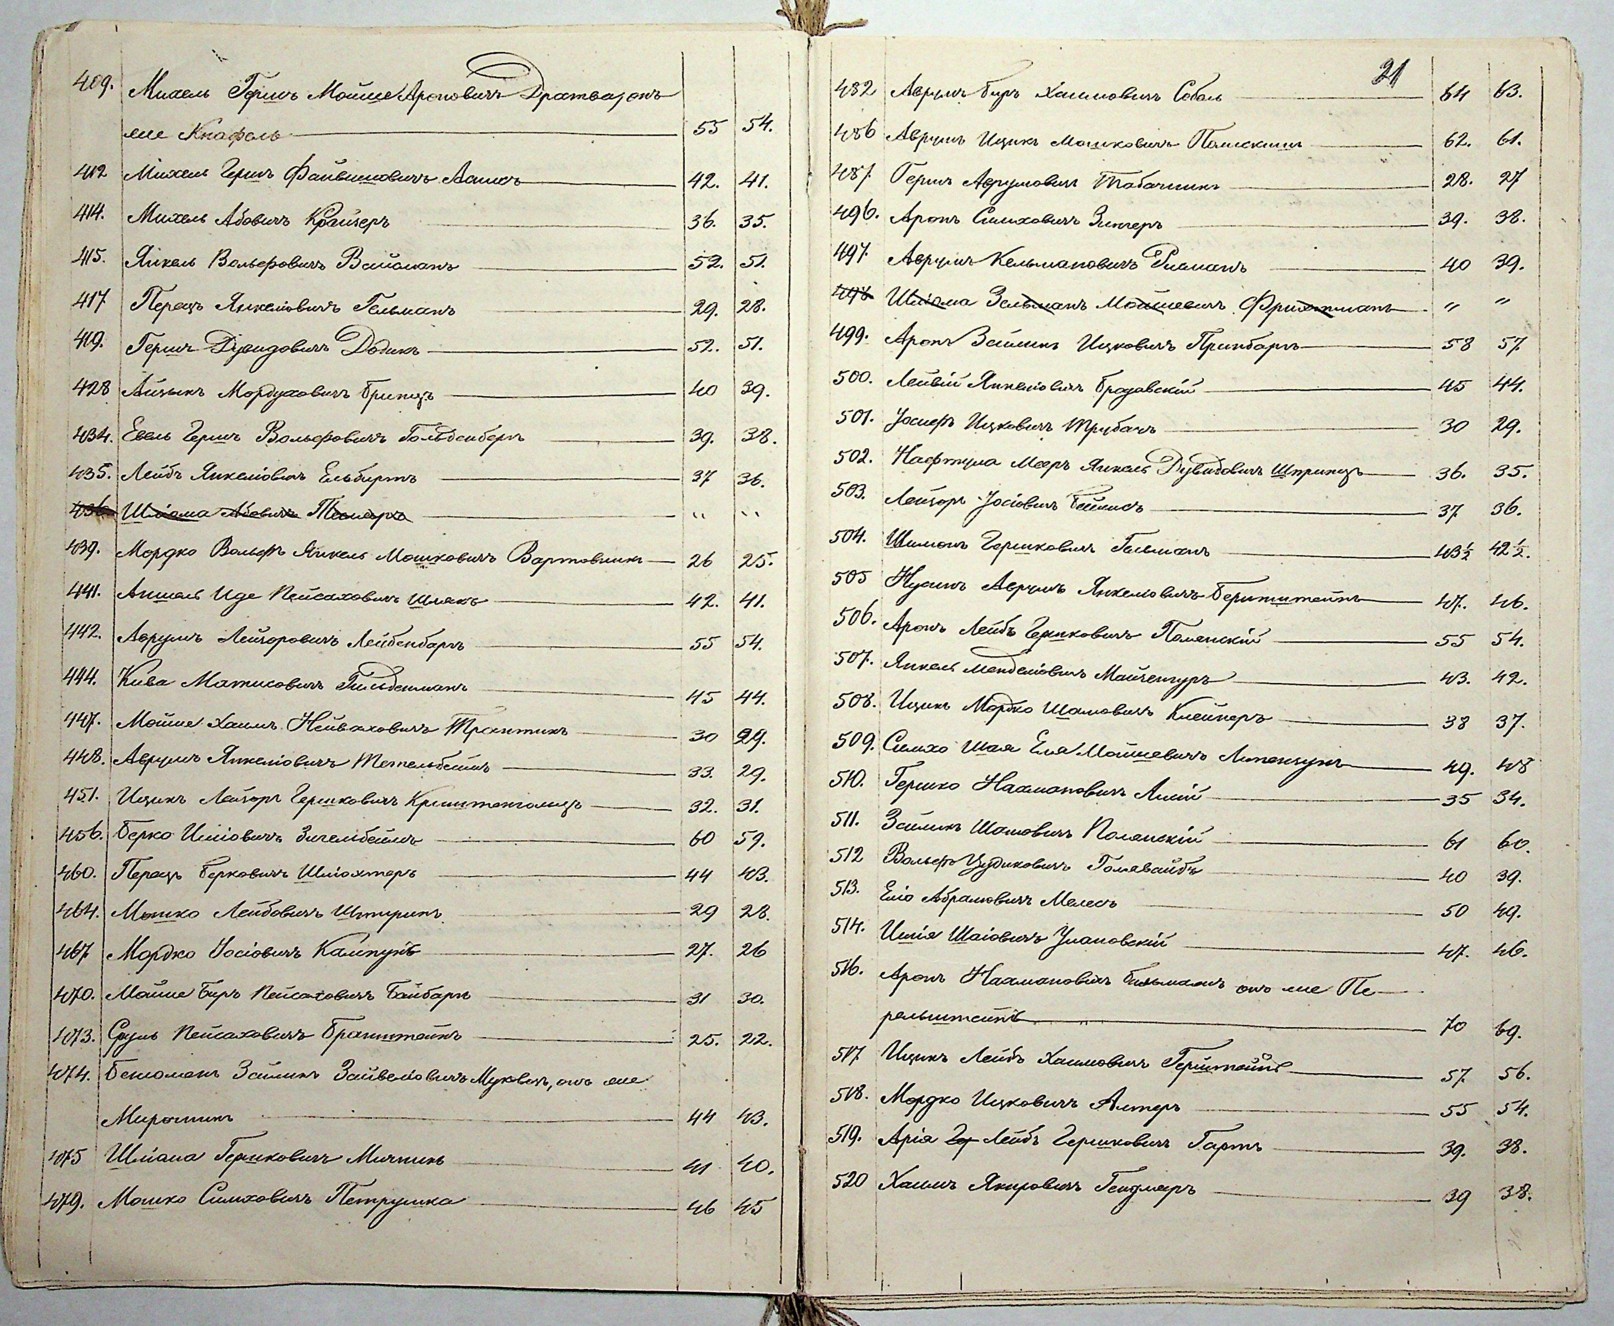 409. Михель Гершъ Мойше Ароновичъ Дратва, онъ
же Кнафель 55 54.
412 Михель Гершъ Файвишовичъ 42. 41.
414. Михель Абовичъ Крайчеръ 36. 35.
415. Янкель Вольфовичъ Вайсманъ 52. 51.
417 Перецъ Янкелiовичъ Гельманъ 29. 28.
419. Гершъ Дувидовичъ Додикъ 52. 51.
428 Айзыкъ Мордуховичъ Бринзъ 40 39.
434. Евель Гершъ Вольфовичъ Гольденбергъ 39. 38.
435. Лейбъ Янкелiовичъ Ельбертъ 37 36.
436. Шлiома Абовичъ " "
439. Мордко Вольфъ Янкель Мошковичъ Вартовникъ 26 25.
441. Аншель Иде Пейсаховичъ Шлякъ 42. 41.
442. Аврумъ Лейзоровичъ Лейденбаръ 55 54.
444. Кива Матисовичъ Гильденманъ 45 44.
447. Мойше Хаимъ Трантикъ 30 29.
448. Аврумъ Янкелiовичъ Тетельбаимъ 33. 29.
451. Ицикъ Лейзоръ Гершковичъ Кришталгольцъ 32. 31.
456. Берко Зигельбеимъ 60 59.
460. Перецъ Берковичъ Шлiохтеръ 44 43.
464. Мошко Лейбовичъ Штуринъ 29 28.
467 Мордко Iосiовичъ 27. 26
470. Мойше Беръ Пейсаховичъ Вайбаръ 31 30.
473. Сруль Пейсаховичъ Бронштейнъ 25. 22.
474. Бенюменъ Зейликъ Зайвелiовичъ онъ же
Мирочникъ 44 43.
475 Шлiома Гершковичъ Мичникъ 41 40.
479. Мошко Симховичъ Петрушка 46 45
21
482 Аврумъ Беръ Хаимовичъ Соболь 64 63.
486 Аврумъ Ицикъ Мошковичъ 62. 61.
487. Гершъ Аврумовичъ Табачникъ 28. 27
496. Аронъ Симховичъ Зингеръ 39. 38.
497. Аврумъ Кельмановичъ Глиманъ 40 39.
498 Шлiома Зельманъ Мойшевичъ Фришманъ " "
499. Аронъ Зейликъ Ицковичъ Гринбаръ 58 57
500. Лейвiй Янкелiовичъ Бродовскiй 45 44.
501. Iосифъ Ицковичъ Трубачъ 30 29.
502. Нафтула Мееръ Янкель Дувидовичъ Шпринцъ 36. 35.
503. Лейзоръ Iосiовичъ Бейнисъ 37 36.
504. Шимонъ Гершковичъ Гельманъ 43½ 42½.
505 Нусинъ Аврумъ Янкелiовичъ Бернштейнъ 47. 46.
506. Аронъ Лейбъ Гершковичъ Полянскiй 55 54.
507. Янкель Менделiовичъ Майзенгуръ 43. 42.
508. Ицикъ Мордко Шамовичъ Клейнеръ 38 37.
509. Симхо Шая Еля Мойшевичъ 49. 48
510. Гершко Нахмановичъ 35 34.
511. Зейликъ Шамовичъ Полянскiй 61 60.
512 Вольфъ Цудиковичъ Голявайдъ 40 39.
513. Елiо Абрамовичъ Мелесъ 50 49.
514. Шлiя Шаiовичъ Улановскiй 47. 46.
516. Аронъ Нахмановичъ онъ же Пе-
рельштейнъ 70 69.
517 Ицикъ Лейбъ Хаимовичъ Герштейнъ 57. 56.
518. Мордко Ицковичъ Алтеръ 55 54.
519. Арiя Лейбъ Гершковичъ Гартъ 39. 38.
520 Хаимъ Якировичъ Гендлеръ 39 38.